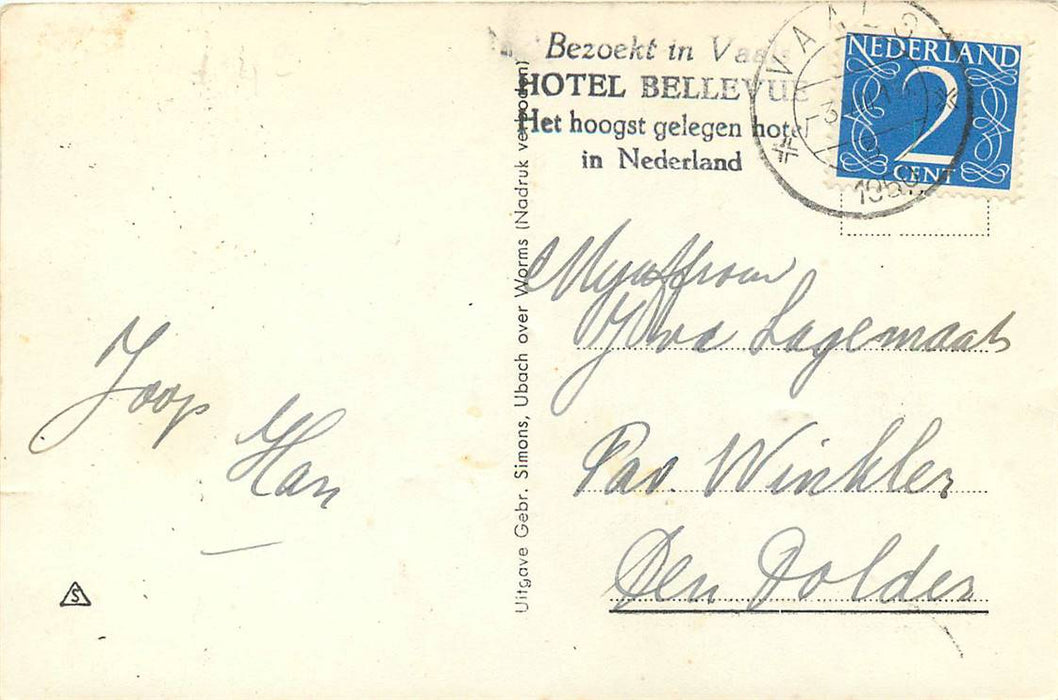 Bezoekt in Vaals
HOTEL BELLEVUE
Het hoogst gelegen hotel
in Nederland
VAALS
NEDERLAND
2
CENT
Uitgave Gebr. Simons, Ubach over Worms (Nadruk verboden)
Joop
Han
Mejuffrouw
Lagemaat
Pav. Winkler
Den Dolder
S